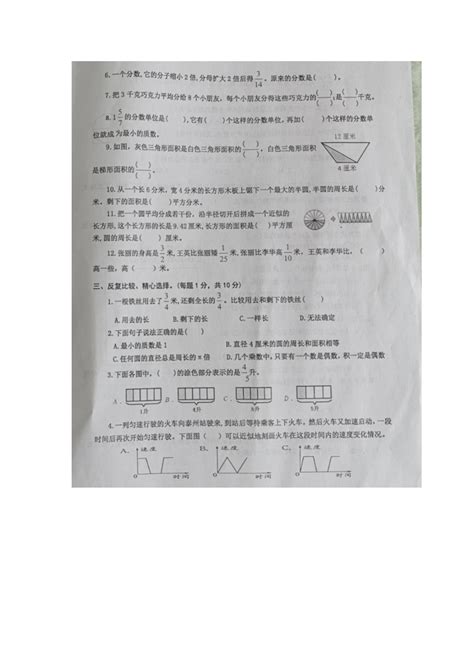 6.一个分数,它的分子缩小2倍,分母扩大2倍后得3/14。原来的分数是( )。
7.把3千克巧克力平均分给8个小朋友,每个小朋友分得这些巧克力的( )/( )是( )/( )千克。
8.1 5/7的分数单位是( ),它有( )个这样的分数单位,再加( )个这样的分数单
位就成为最小的质数。
9.如图,灰色三角形面积是白色三角形面积的( )/( ),白色三角形面积
12厘米
是梯形面积的( )/( )。
4厘米
10.从一个长6分米,宽4分米的长方形木板上锯下一个最大的半圆,半圆的周长是( )分
米。剩下的面积是( )平方分米。
11.把一个圆平均分成若干份,沿半径切开后拼成一个近似的
长方形,这个长方形的长是9.42厘米,长方形的面积是( )平方厘
米,圆的周长是( )厘米。
12.张丽的身高是3/2米,王英比张丽矮1/25米,张丽比李华高1/10米,王英和李华比,( )
高一些,高( )米。
三、反复比较、精心选择。(每题1分,共10分)
1.一根铁丝用去了3/4米,还剩全长的3/4。比较用去和剩下的铁丝( )
A.用去的长 B.剩下的长 C.一样长 D.无法确定
2.下面句子说法正确的是( )
A.最小的质数是1 B.直径4厘米的圆周长和面积相等
C.任何圆的直径总是周长的π倍 D.几个数乘中,只要有一个数是偶数,积一定是偶数
3.下面各图中,( )的涂色部分表示的是4/5升。
A. B. C. D.
1升 4升 4升 5升
4.一列匀速行驶的火车向泰州站驶来,到站后等待乘客上下火车,然后火车又加速启动,一段
时间后再次开始匀速行驶。下面图( )可以近似地刻画火车在这段时间内的速度变化情况。
A. 速度 B. 速度 C. 速度
O 时间 O 时间 O 时间